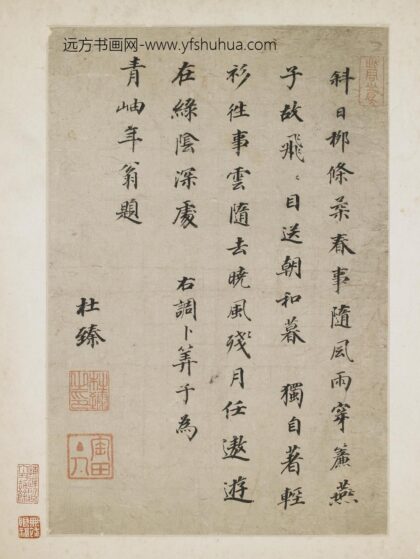 远方书画网-www.yfshuhua.com
斜日柳條柔春事隨風雨穿簾燕
子故飛〻目送朝和暮 獨自著輕
衫往事雲隨去曉風殘月任遨遊
在綠陰深處 右調卜筭子為
青岫年翁題
杜臻
杜臻之印